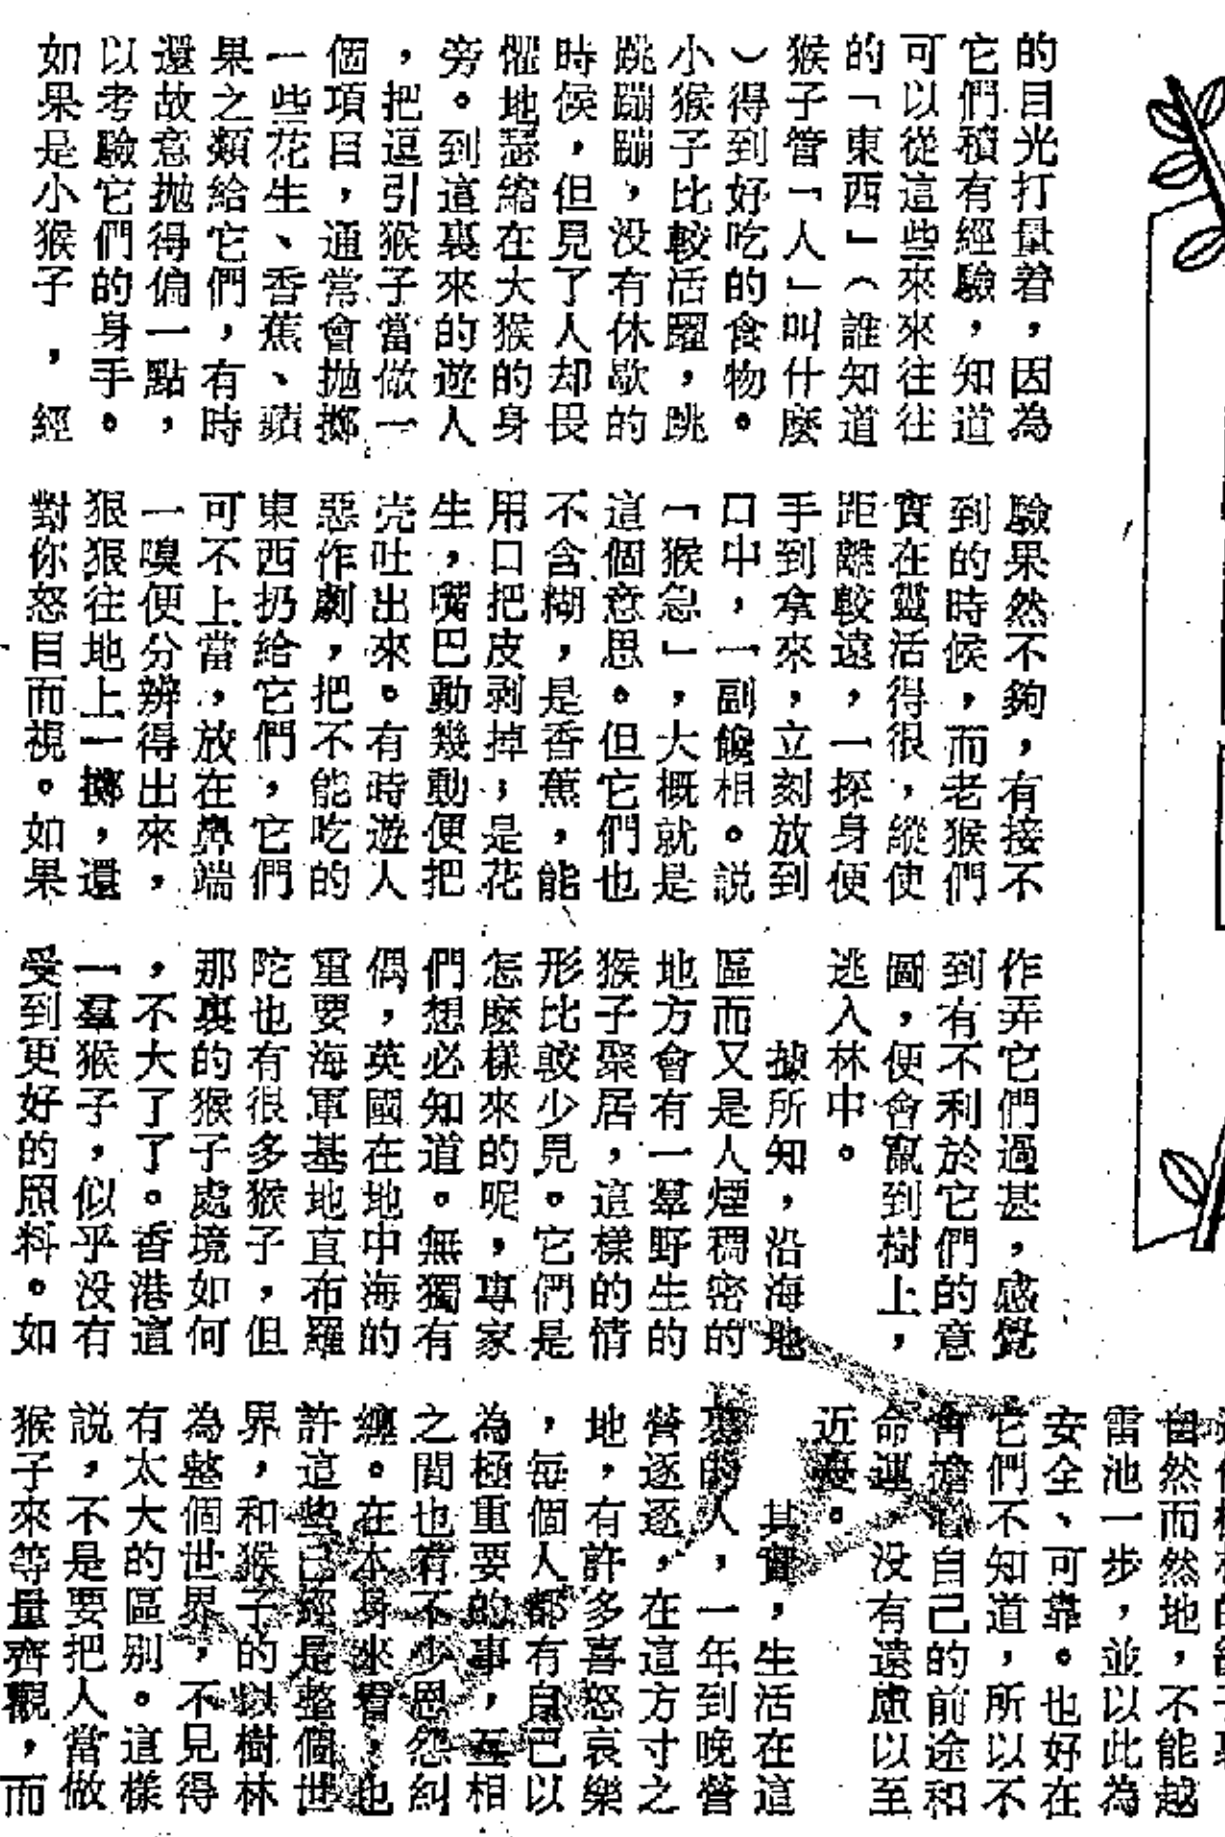 的目光打量着，因為
它們積有經驗，知道
可以從這些來來往往
的「東西」（誰知道
猴子管「人」叫什麼
）得到好吃的食物。
小猴子比較活躍，跳
跳蹦蹦，没有休歇的
時候，但見了人却畏
懼地瑟縮在大猴的身
旁。到這裏來的遊人
，把逗引猴子當做一
個項目，通常會拋擲
一些花生、香蕉、蘋
果之類給它們，有時
還故意拋得偏一點，
以考驗它們的身手。
如果是小猴子，經
驗果然不夠，有接不
到的時候，而老猴們
實在靈活得很，縱使
距離較遠，一探身便
手到拿來，立刻放到
口中，一副饞相。説
「猴急」，大概就是
這個意思。但它們也
不含糊，是香蕉，能
用口把皮剥掉；是花
生，嘴巴動幾動便把
壳吐出來。有時遊人
惡作劇，把不能吃的
東西扔給它們，它們
可不上當，放在鼻端
一嗅便分辨得出來，
狠狠往地上一擲，還
對你怒目而視。如果
作弄它們過甚，感覺
到有不利於它們的意
圖，便會竄到樹上，
逃入林中。
據所知，沿海地
區而又是人煙稠密的
地方會有一羣野生的
猴子聚居，這樣的情
形比較少見。它們是
怎麽樣來的呢，專家
們想必知道。無獨有
偶，英國在地中海的
重要海軍基地直布羅
陀也有很多猴子，但
那裏的猴子處境如何
，不大了了。香港這
一羣猴子，似乎没有
受到更好的照料。如
自然而然地，不能越
雷池一步，並以此為
安全、可靠。也好在
它們不知道，所以不
會擔心自己的前途和
命運，没有遠慮以至
近憂。
其實，生活在這
裏的人，一年到晚營
營逐逐，在這方寸之
地，有許多喜怒哀樂
，每個人都有自己以
為極重要的事，互相
之間也有不少恩怨糾
纏。在本身來看，也
許這些已經是整個世
界，和猴子的以樹林
為整個世界，不見得
有太大的區別。這樣
説，不是要把人當做
猴子來等量齊觀，而